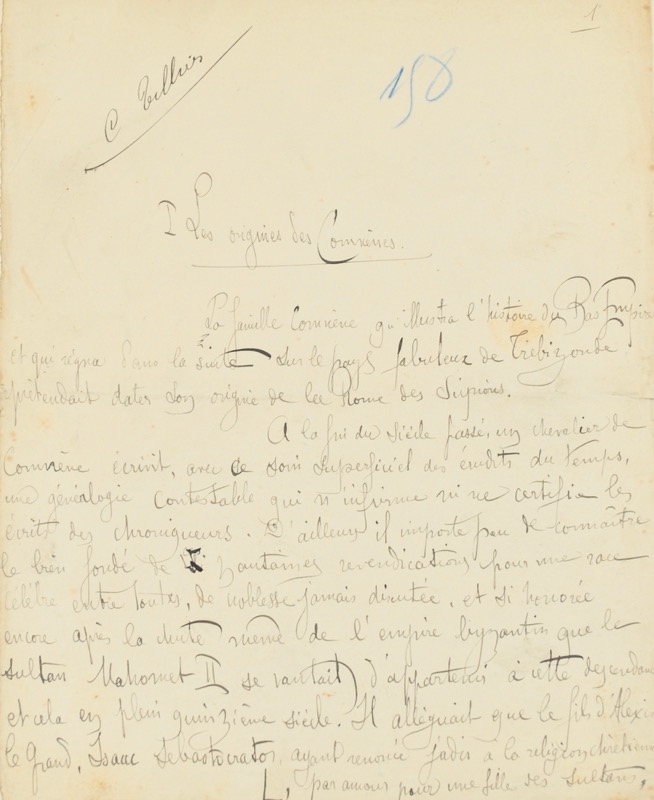 1
C Tellier
158
I Les origines des Comnènes.
La famille Comnène qui illustra l'histoire du Bas Empire
et qui régna dans la suite sur le pays fabuleux de Trébizonde
prétendait dater son origine de la Rome des Scipions.
A la fin du siècle passé, un chevalier de
Comnène écrivit, avec ce soin superficiel des érudits du temps,
une généalogie contestable qui n'infirme ni ne certifie les
écrits des chroniqueurs. D'ailleurs il importe peu de connaître
le bien fondé de lointaines revendications pour une race
célèbre entre toutes, de noblesse jamais discutée, et si honorée
encore après la chute même de l'empire byzantin que le
sultan Mahomet II se vantait d'appartenir à cette descendance
et cela en plein quinzième siècle. Il alléguait que le fils d'Alexis
le Grand, Isaac Sebastocrator, ayant renoncé jadis à la religion chrétienne
par amour pour une fille des sultans,